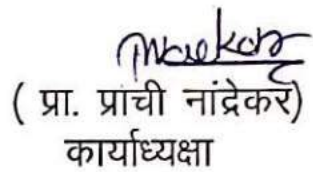 ( प्रा. प्राची नांद्रेकर)
कार्याध्यक्षा